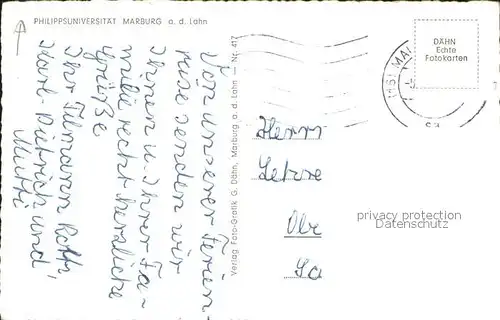 PHILIPPSUNIVERSITÄT MARBURG a. d. Lahn
Von unserer Ferien-
reise senden wir
Ihnen u. Ihrer Fa-
milie recht herzliche
Grüße
Ihr Tilmann
Karl-Dietrich und
Mutti
Verlag Foto-Grafik G. Dähn, Marburg a. d. Lahn — Nr. 417
DÄHN
Echte
Fotokarten
Herrn
privacy protection
Datenschutz